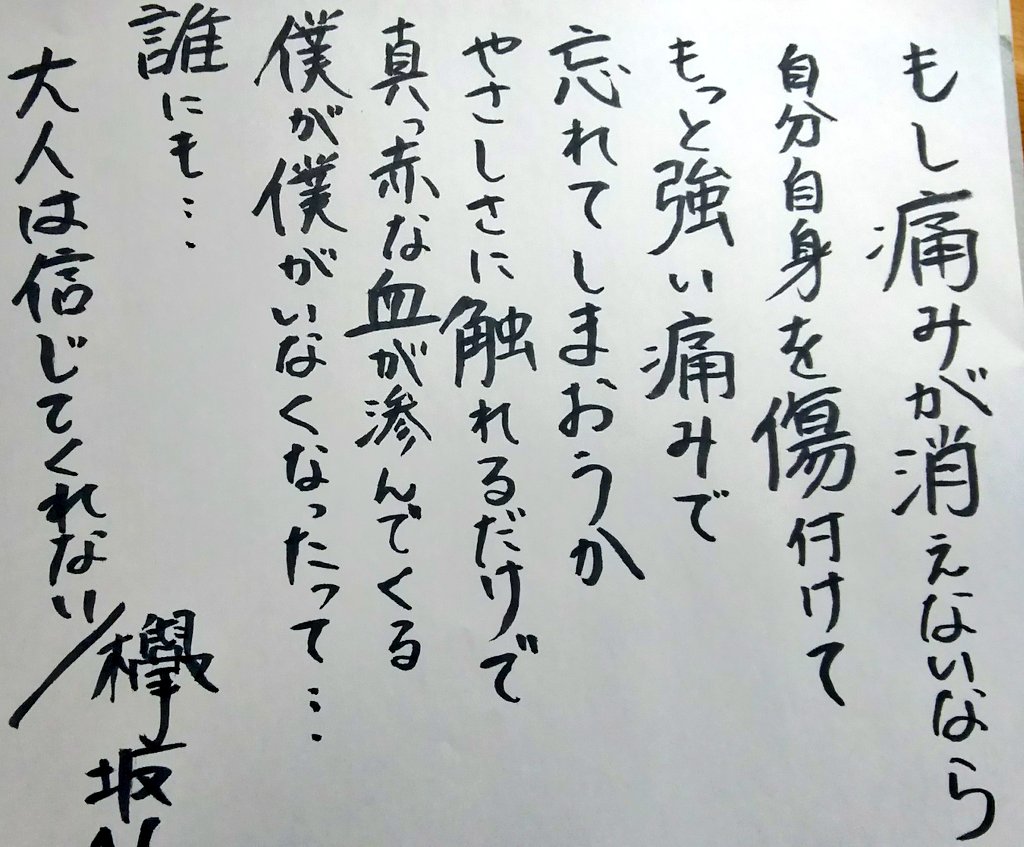 もし痛みが消えないなら
自分自身を傷付けて
もっと強い痛みで
忘れてしまおうか
やさしさに触れるだけで
真っ赤な血が滲んでくる
僕が僕がいなくなったって…
誰にも…
大人は信じてくれない/欅坂